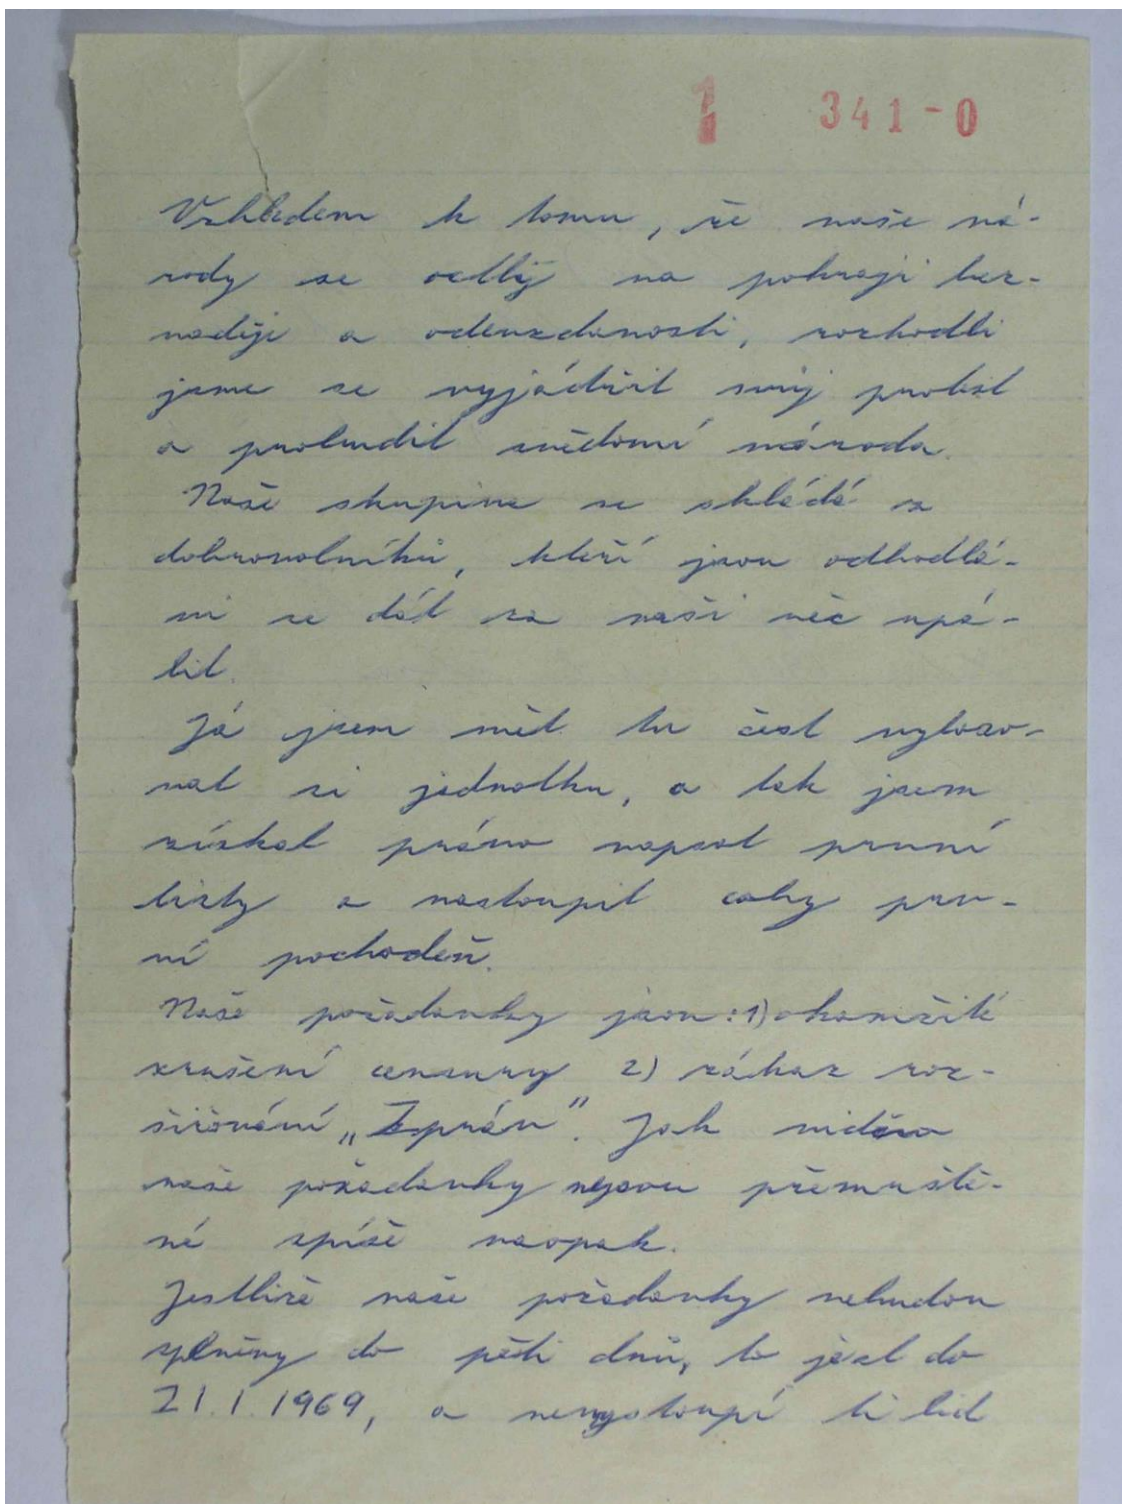 1 341-0
Vzhledem k tomu, že naše ná-
rody se octly na pokraji bez-
naděje a odevzdanosti, rozhodli
jsme se vyjádřit svůj protest
a probudit svědomí národa.
Naše skupina se skládá z
dobrovolníků, kteří jsou odhodlá-
ni se dát za naši věc upá-
lit.
Já jsem měl tu čest vyloso-
vat si jedničku, a tak jsem
získal právo napsat první
listy a nastoupit coby prv-
ní pochodeň.
Naše požadavky jsou: 1) okamžité
zrušení cenzury 2) zákaz roz-
šiřování „Zpráv". Jak vidíno
naše požadavky nejsou přemrště-
né spíše naopak.
Jestliže naše požadavky nebudou
splněny do pěti dnů, to jest do
21.1.1969, a nevystoupí li lid